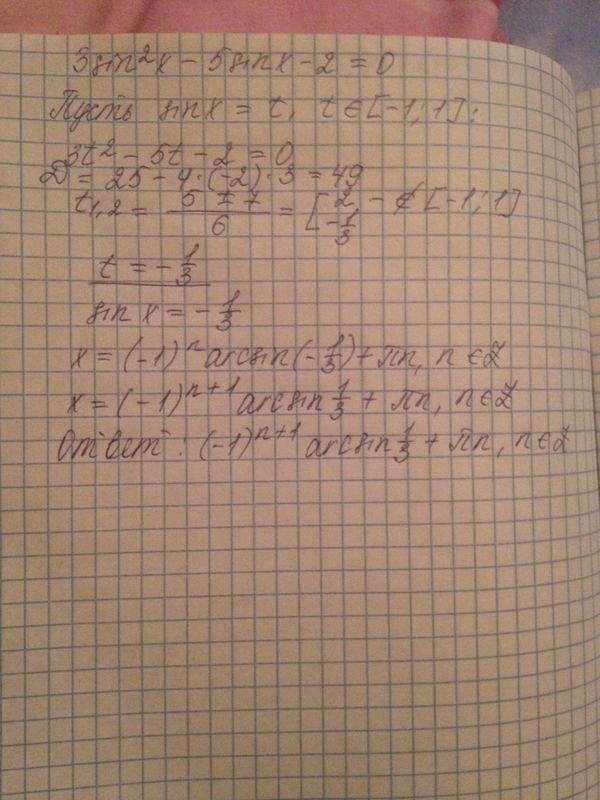 3sin²x - 5sinx - 2 = 0
Пусть sinx = t, t∈[-1; 1]:
3t² - 5t - 2 = 0
D = 25 - 4·(-2)·3 = 49
t1,2 = (5 ∓ 7)/6 = [2 - ∉ [-1; 1]
-1/3
t = -1/3
sin x = -1/3
x = (-1)ⁿ arcsin(-1/3) + πn, n∈Z
x = (-1)ⁿ⁺¹ arcsin 1/3 + πn, n∈Z
Ответ: (-1)ⁿ⁺¹ arcsin 1/3 + πn, n∈Z